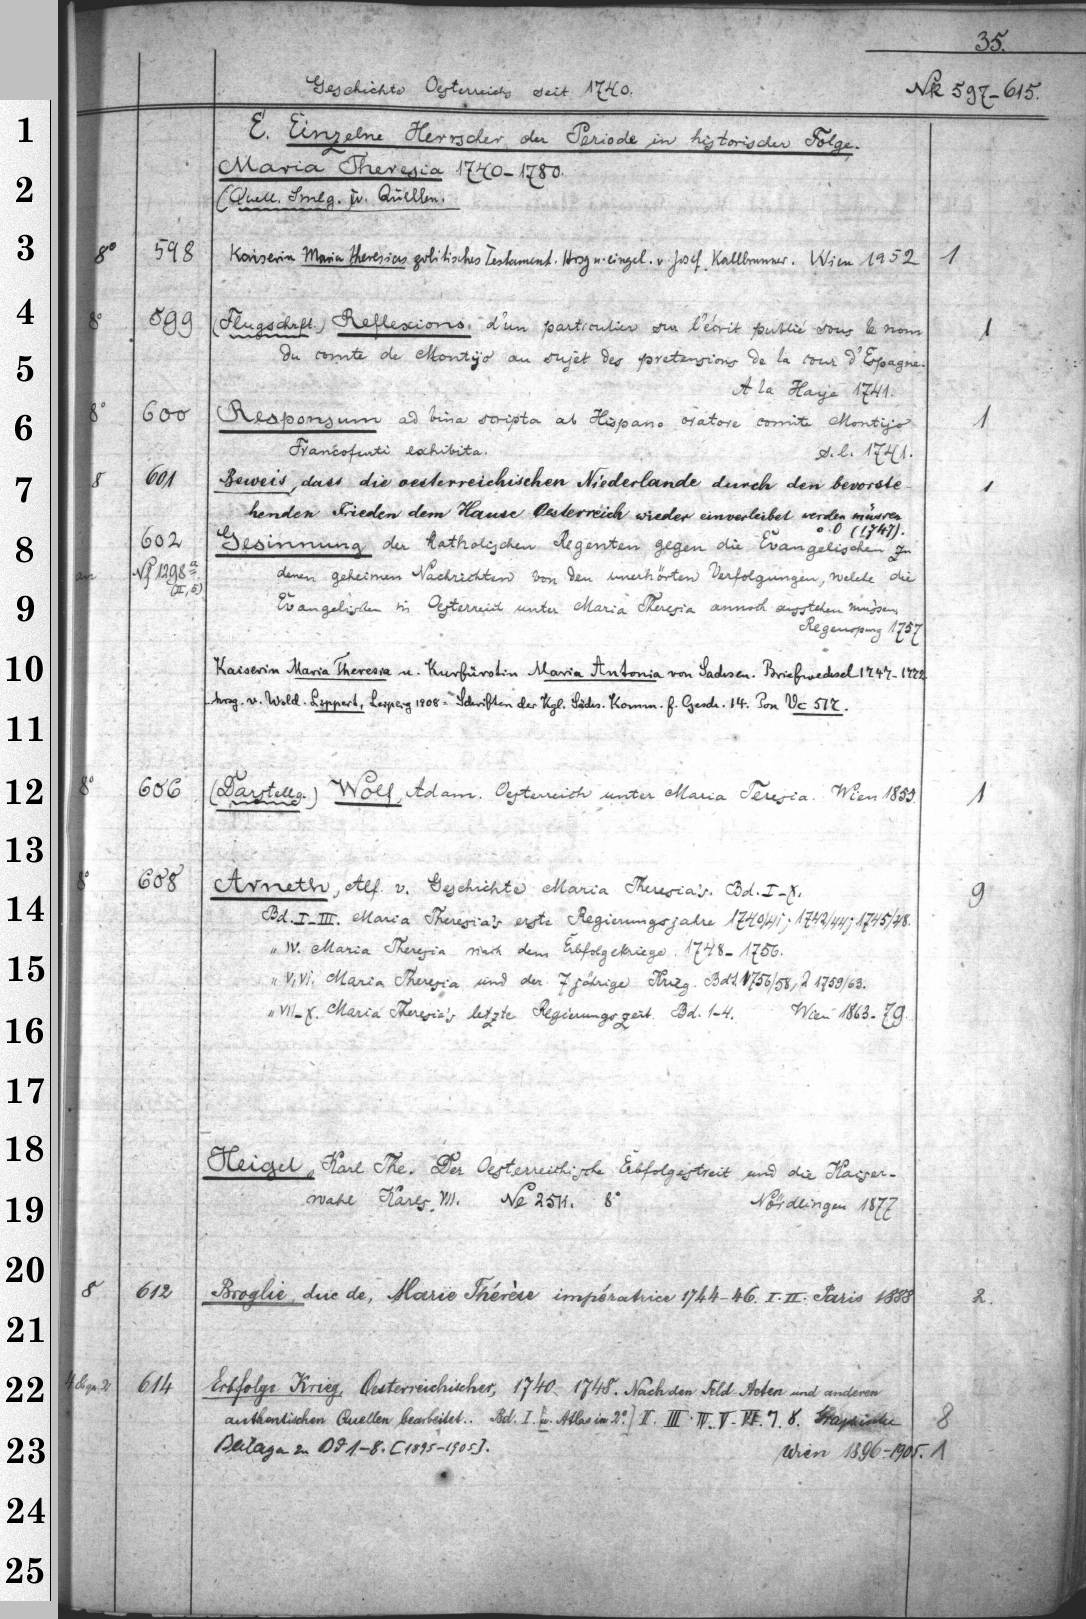 35.
Geschichte Oesterreichs seit 1740. Nk 597-615.
1
E. Einzelne Herrscher der Periode in historischer Folge.
Maria Theresia 1740-1780.
2
(Quell. Smlg. u. Quellen.
3
8° 598 Kaiserin Maria Theresias politisches Testament. Hrsg u. eingel. v. Josef Kallbrunner. Wien 1952 1
4
8° 599 (Flugschrft.) Reflexions d'un particulier sur l'écrit publié sous le nom 1
du comte de Montijo au sujet des pretensions de la cour d'Espagne.
5
A la Haye 1741.
6
8° 600 Responsum ad bina scripta ab Hispano oratore comite Montijo 1
Francofurti exhibita. s.l. 1741.
7
8 601 Beweis, dass die oesterreichischen Niederlande durch den bevorste- 1
henden Frieden dem Hause Oesterreich wieder einverleibet werden müssen
o. O (1747).
8
602 Gesinnung der katholischen Regenten gegen die Evangelischen zu
an Nf 1298a denen geheimen Nachrichten von den unerhörten Verfolgungen, welche die
(II, 5)
9
Evangelischen in Oesterreich unter Maria Theresia annoch ausstehen müssen.
Regenspurg 1757
10
Kaiserin Maria Theresia u. Kurfürstin Maria Antonia von Sachsen. Briefwechsel 1747-1772
hrsg. v. Wold. Lippert, Leipzig 1908 = Schriften der Kgl. Sächs. Komm. f. Gesch. 14. Von Vc 517.
11
12
8° 606 (Darstellg.) Wolf, Adam. Oesterreich unter Maria Teresia. Wien 1855. 1
13
8° 608 Arneth, Alf. v. Geschichte Maria Theresia's. Bd. I-X. 9
14
Bd. I-III. Maria Theresia's erste Regierungsjahre 1740/41; 1742/44; 1745/48.
" IV. Maria Theresia nach dem Erbfolgekriege. 1748-1756.
15
" V, VI. Maria Theresia und der 7 jährige Krieg. Bd 1 1756/58, 2 1759/63.
16
" VII-X. Maria Theresia's letzte Regierungszeit. Bd. 1-4. Wien 1863-79.
17
18
Heigel, Karl The. Der Oesterreichische Erbfolgestreit und die Kaiser-
19
wahl Karls VII. Ne 2511. 8° Nördlingen 1877
20
8 612 Broglie, duc de, Marie Thérèse impératrice 1744-46. I. II. Paris 1888 2.
21
22
614 Erbfolge Krieg, Oesterreichischer, 1740-1748. Nach den Feld Acten und anderen
authentischen Quellen bearbeitet. Bd. I. [u. Atlas in 2°.] II. III. IV. V. VI. 7. 8. Graphische 8
23
Beilagen zu Bd 1-8. [1895-1905]. Wien 1896-1905. 1
24
25